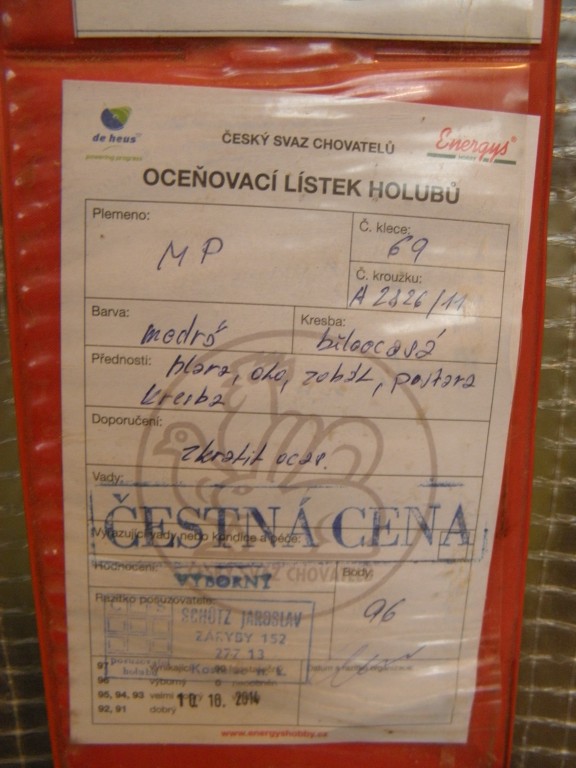 de heus
powering progress
ČESKÝ SVAZ CHOVATELŮ
Energys
OCEŇOVACÍ LÍSTEK HOLUBŮ
Plemeno:
MP
Č. klece:
69
Č. kroužku:
A 2826/11
Barva:
modrá
Kresba:
běloocasá
Přednosti: hlava, oko, zobák, postava
kresba
Doporučení:
zkrátit ocas.
Vady:
ČESTNÁ CENA
Vyřazující vady nebo kondice a péče:
Hodnocení:
VÝBORNÝ
SVAZ CHOVATELŮ
Body:
96
Razítko posuzovatele:
SCHÜTZ JAROSLAV
ZÁRYBY 152
277 13
97
96 výborný
95, 94, 93 velmi dobrý
92, 91 dobrý
10. 10. 2014
www.energyshobby.cz